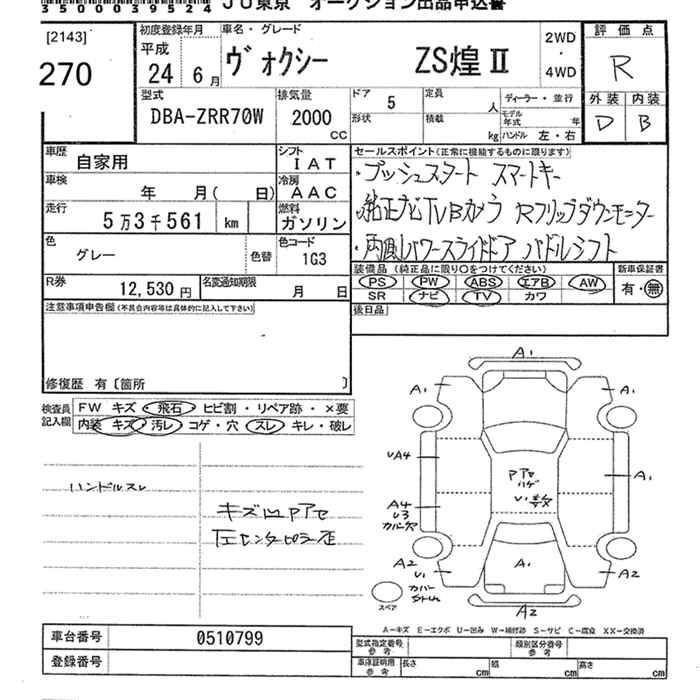 350003952 4 JU東京 オークション出品申込書
[2143]
270
初度登録年月
平成
24 6月
車名・グレード
ヴォクシー ZS煌Ⅱ
2WD
・
4WD
評価点
R
外装 内装
D B
型式
DBA-ZRR70W
排気量
2000
CC
ドア 5
定員 人
形状
積載 kg
ディーラー・並行
モデル年式 年
ハンドル 左・右
車歴
自家用
シフト
IAT
車検
年 月( 日)
冷房
AAC
走行
5万3千561 km
燃料
ガソリン
色
グレー
色替
色コード
1G3
R券
12,530円
名変通知期限
月 日
セールスポイント(正常に機能するものに限ります)
・プッシュスタート スマートキー
・純正ナビTVBカメラ Rフリップダウンモニター
・両側パワースライドドア パドルシフト
装備品(純正品に限り○をつけてください)
PS PW ABS エアB AW
SR ナビ TV カワ
新車保証書
有・無
後日品
注意事項申告欄(不具合内容等は具体的に記入して下さい)
修復歴 有〔箇所 〕
検査員
記入欄
FW キズ・飛石・ヒビ割・リペア跡・×要
内装 キズ・汚レ コゲ・穴 スレ キレ・破レ
ハンドルスレ
キズ凹Pアセ
A1
A1
A1
UA4
Pアセ
ハゲ
A1
A4
U3
カバー穴
A2
U1
カバー
A1
A2
A2
スペア
A-キズ E-エクボ U-凹み W-補修跡 S-サビ C-腐食 XX-交換済
車台番号 0510799
登録番号
型式指定番号
参考
類別区分番号
参考
車庫証明用
参考
長さ cm 幅 cm 高さ cm